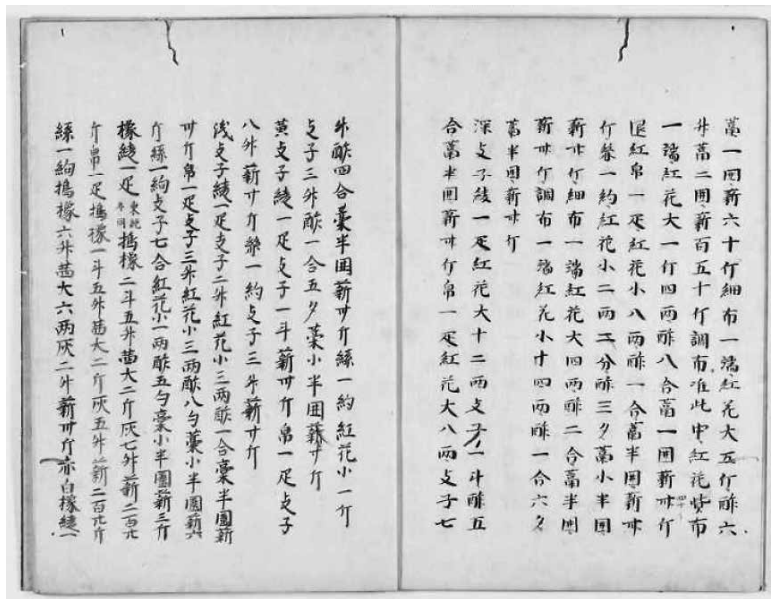 藁一囲薪六十斤細布一端紅花大五斤酢六
升藁二囲薪百五十斤調布准此中紅花貲布
一端紅花大一斤四両酢八合藁一囲薪卌斤
退紅帛一疋紅花小八両酢一合藁半囲薪卅
斤絲一絇紅花小二両二分酢三夕藁小半囲
薪卅斤細布一端紅花大四両酢二合藁半囲
薪卌斤調布一端紅花小十四両酢一合六夕
藁半囲薪卅斤
深支子綾一疋紅花大十二両支子一斗酢五
合藁半囲薪卌斤帛一疋紅花大八両支子七
升酢四合藁半囲薪卅斤絲一絇紅花小一斤
支子三升酢一合五夕藁小半囲薪廿斤
黄支子綾一疋支子一斗薪卌斤帛一疋支子
八升薪廿斤絲一絇支子三升薪廿斤
浅支子綾一疋支子二升紅花小三両酢一合藁半圍薪
卅斤帛一疋支子三升紅花小三両酢八勺藁小半圍薪六
斤絲一絇支子七合紅花小一両酢五勺藁小半圍薪三斤
橡綾一疋搗橡二斗五升茜大二斤灰七升薪二百卌
斤帛一疋搗橡一斗五升茜大二斤灰五升薪二百卌斤
絲一絇搗橡六升茜大六両灰二升薪卅斤赤白橡綾一